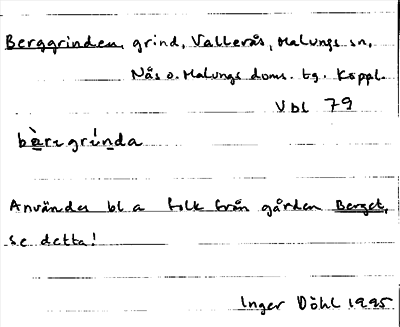 Berggrinden, grind, Vallerås, Malungs sn,
Nås o. Malungs doms. tg. Koppl.
Vbl 79
bàrɪgrínda
Användes bl a folk från gården Berget,
se detta!
Inger Döhl 1995